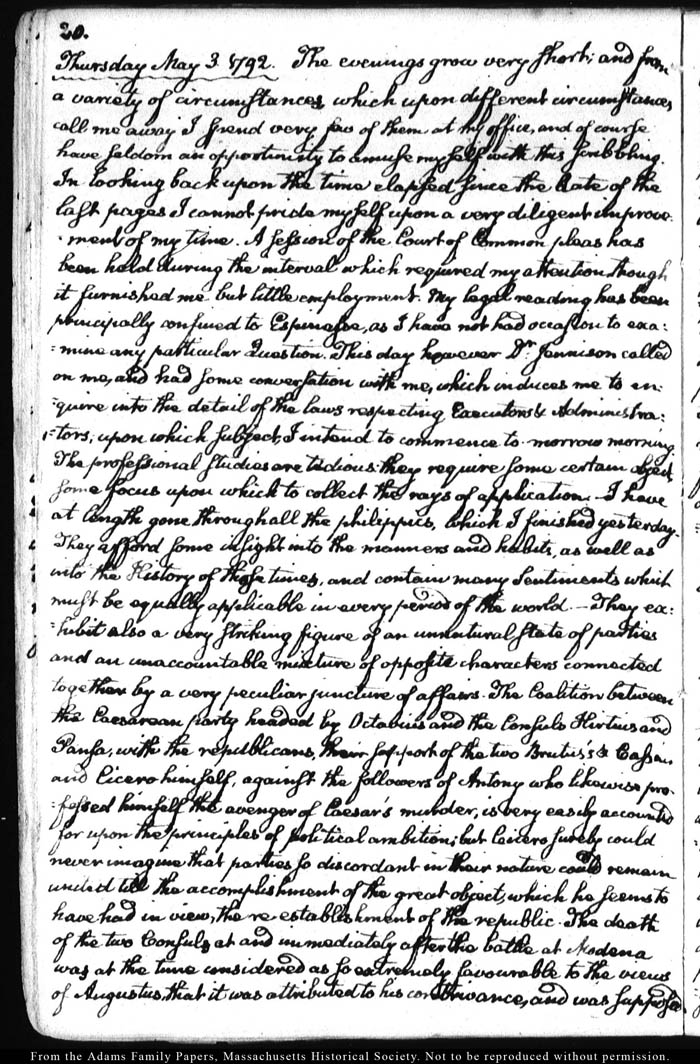 20.
Thursday May 3. 1792. The evenings grow very short; and from
a variety of circumstances, which upon different circumstances,
call me away I spend very few of them at my office, and of course
have seldom an opportunity to amuse myself with this scribbling.
In looking back upon the time elapsed since the date of the
last pages I cannot pride myself upon a very diligent improve-
-ment of my time. A session of the Court of Common pleas has
been held during the interval which required my attention, though
it furnished me but little employment. My legal reading has been
principally confined to Espinasse, as I have not had occasion to exa:
:mine any particular Question. This day however Dr. Jennison called
on me, and had some conversation with me, which induces me to en:
:quire into the detail of the laws respecting Executors & Administra:
:tors, upon which subject, I intend to commence to-morrow morning.
The professional studies are tedious: they require some certain object
some focus upon which to collect the rays of application. — I have
at length gone through all the philippics, which I finished yesterday.
They afford some insight into the manners and habits, as well as
into the History of those times, and contain many sentiments which
must be equally applicable in every period of the world. — They ex:
:hibit also a very striking figure of an unnatural state of parties
and an unaccountable mixture of opposite characters connected
together by a very peculiar juncture of affairs. The Coalition between
the Caesarean party headed by Octavius and the Consuls Hirtius and
Pansa, with the republicans, their support of the two Brutus's & Cassius
and Cicero himself, against the followers of Antony who likewise pro-
:fessed himself the avenger of Caesar's murder, is very easily accounted
for upon the principles of political ambition; but Cicero surely could
never imagine that parties so discordant in their nature could remain
united till the accomplishment of the great object, which he seems to
have had in view, the re-establishment of the republic. The death
of the two Consuls at and immediately after the battle at Modena
was at the time considered as so extremely favourable to the views
of Augustus, that it was attributed to his contrivance, and was supposed
From the Adams Family Papers, Massachusetts Historical Society. Not to be reproduced without permission.